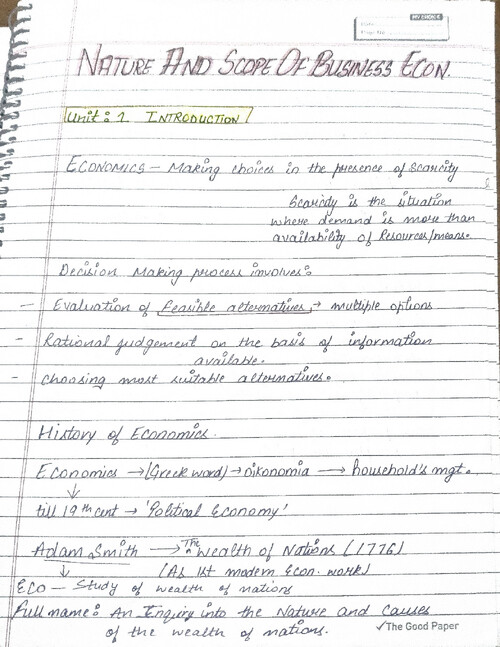 MY CHOICE
Date
Page No.
NATURE AND SCOPE OF BUSINESS ECON.
Unit: 1 INTRODUCTION
ECONOMICS - Making choices in the presence of scarcity
Scarcity is the situation
where demand is more than
availability of Resources/means.
Decision Making process involves:
- Evaluation of feasible alternatives, → multiple options
- Rational judgement on the basis of information
available.
- choosing most suitable alternatives.
History of Economics.
Economics → (Greek word) → oikonomia → household's mgt.
↓
till 19th cent → 'Political Economy'
Adam Smith → The Wealth of Nations (1776)
↓ (As 1st modern Econ. work)
ECO - Study of wealth of nations
Full name: An Inquiry into the Nature and causes
of the wealth of nations.
✓The Good Paper